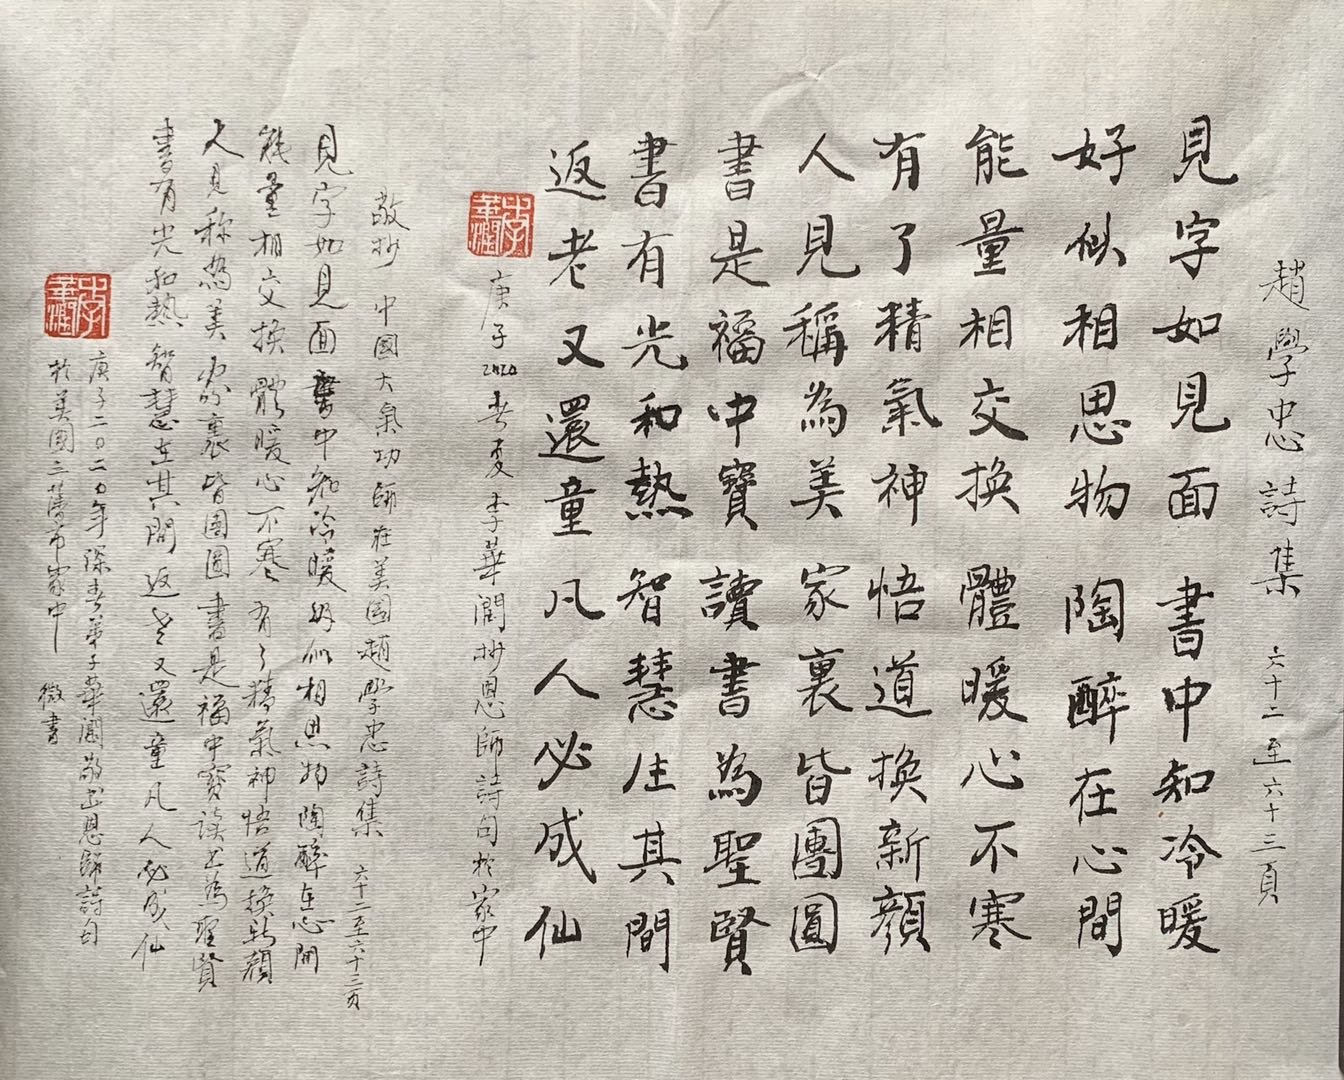 趙學忠詩集 六十二至六十三頁
見字如見面 書中知冷暖
好似相思物 陶醉在心間
能量相交換 體暖心不寒
有了精氣神 悟道換新顏
人見稱為美 家裏皆團圓
書是福中寶 讀書為聖賢
書有光和熱 智慧生其間
返老又還童 凡人必成仙
李華潤
庚子2020春夏李華潤抄恩師詩句於家中
敬抄 中國大氣功師在美国趙學忠詩集 六十二至六十三頁
見字如見面書中知冷暖好似相思物陶醉在心間
能量相交換體暖心不寒有了精氣神悟道換新顏
人見稱為美家裏皆团圓書是福中寶读书為聖賢
書有光和熱智慧在其間返老又還童凡人必成仙
庚子二0二0年深春弟子華潤敬书恩師詩句
於美国三藩市家中 微書
李華潤